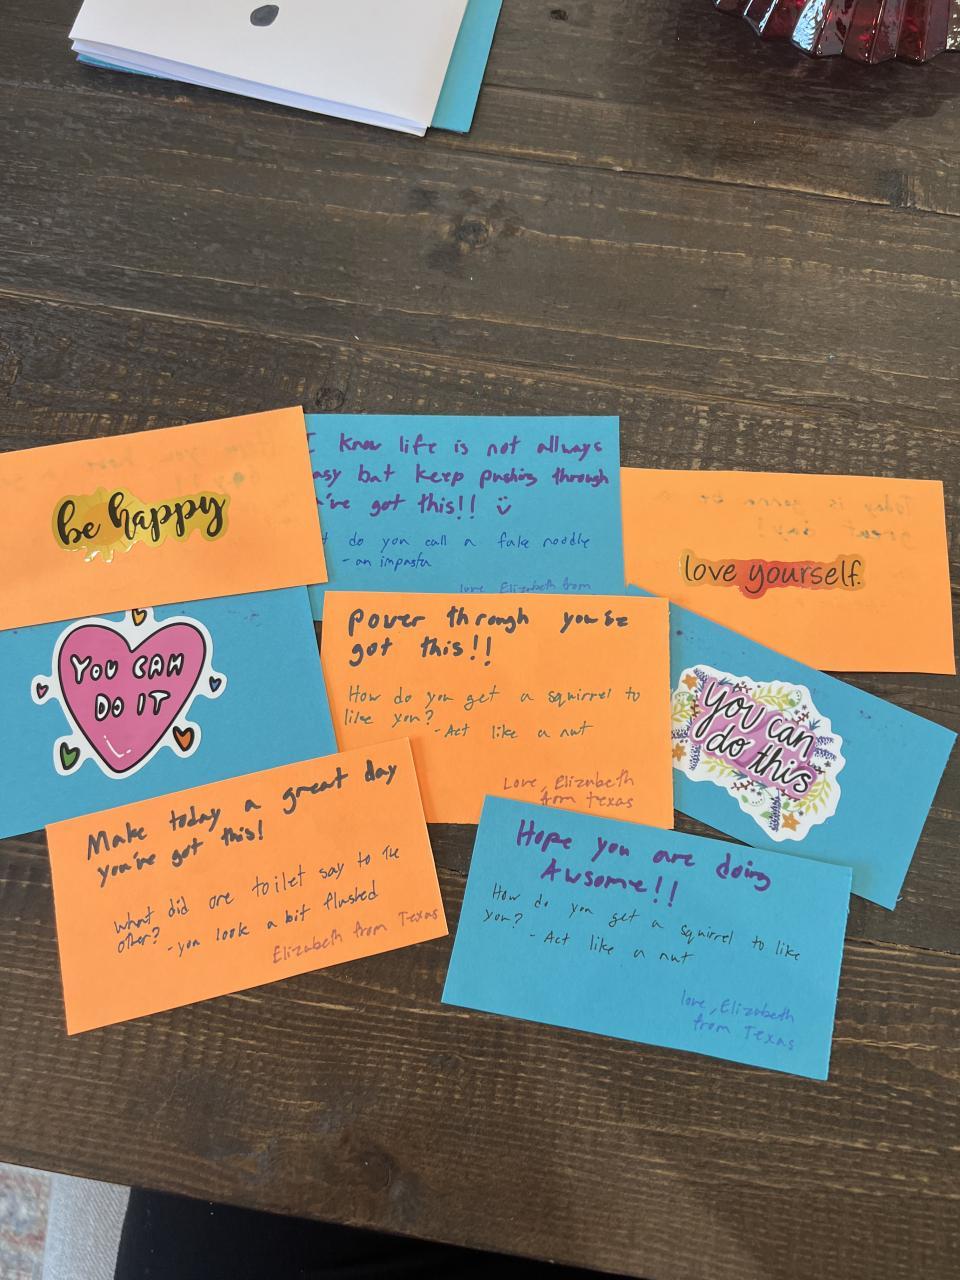 be happy
I know life is not allways
asy but keep pushing through
've got this!! ü
do you call a fake noodle
- an impasta
love, Elizabeth from
Today is gonna be
great day!
love yourself.
YOU CAN
DO IT
Power through you've
got this!!
How do you get a squirrel to
like you?
- Act like a nut
Love, Elizabeth
from texas
you can
do this
Make today a great day
you've got this!
what did one toilet say to the
other?
- you look a bit flushed
Elizabeth from Texas
Hope you are doing
Awsome!!
How do you get a squirrel to like
you?
- Act like a nut
love, Elizabeth
from Texas